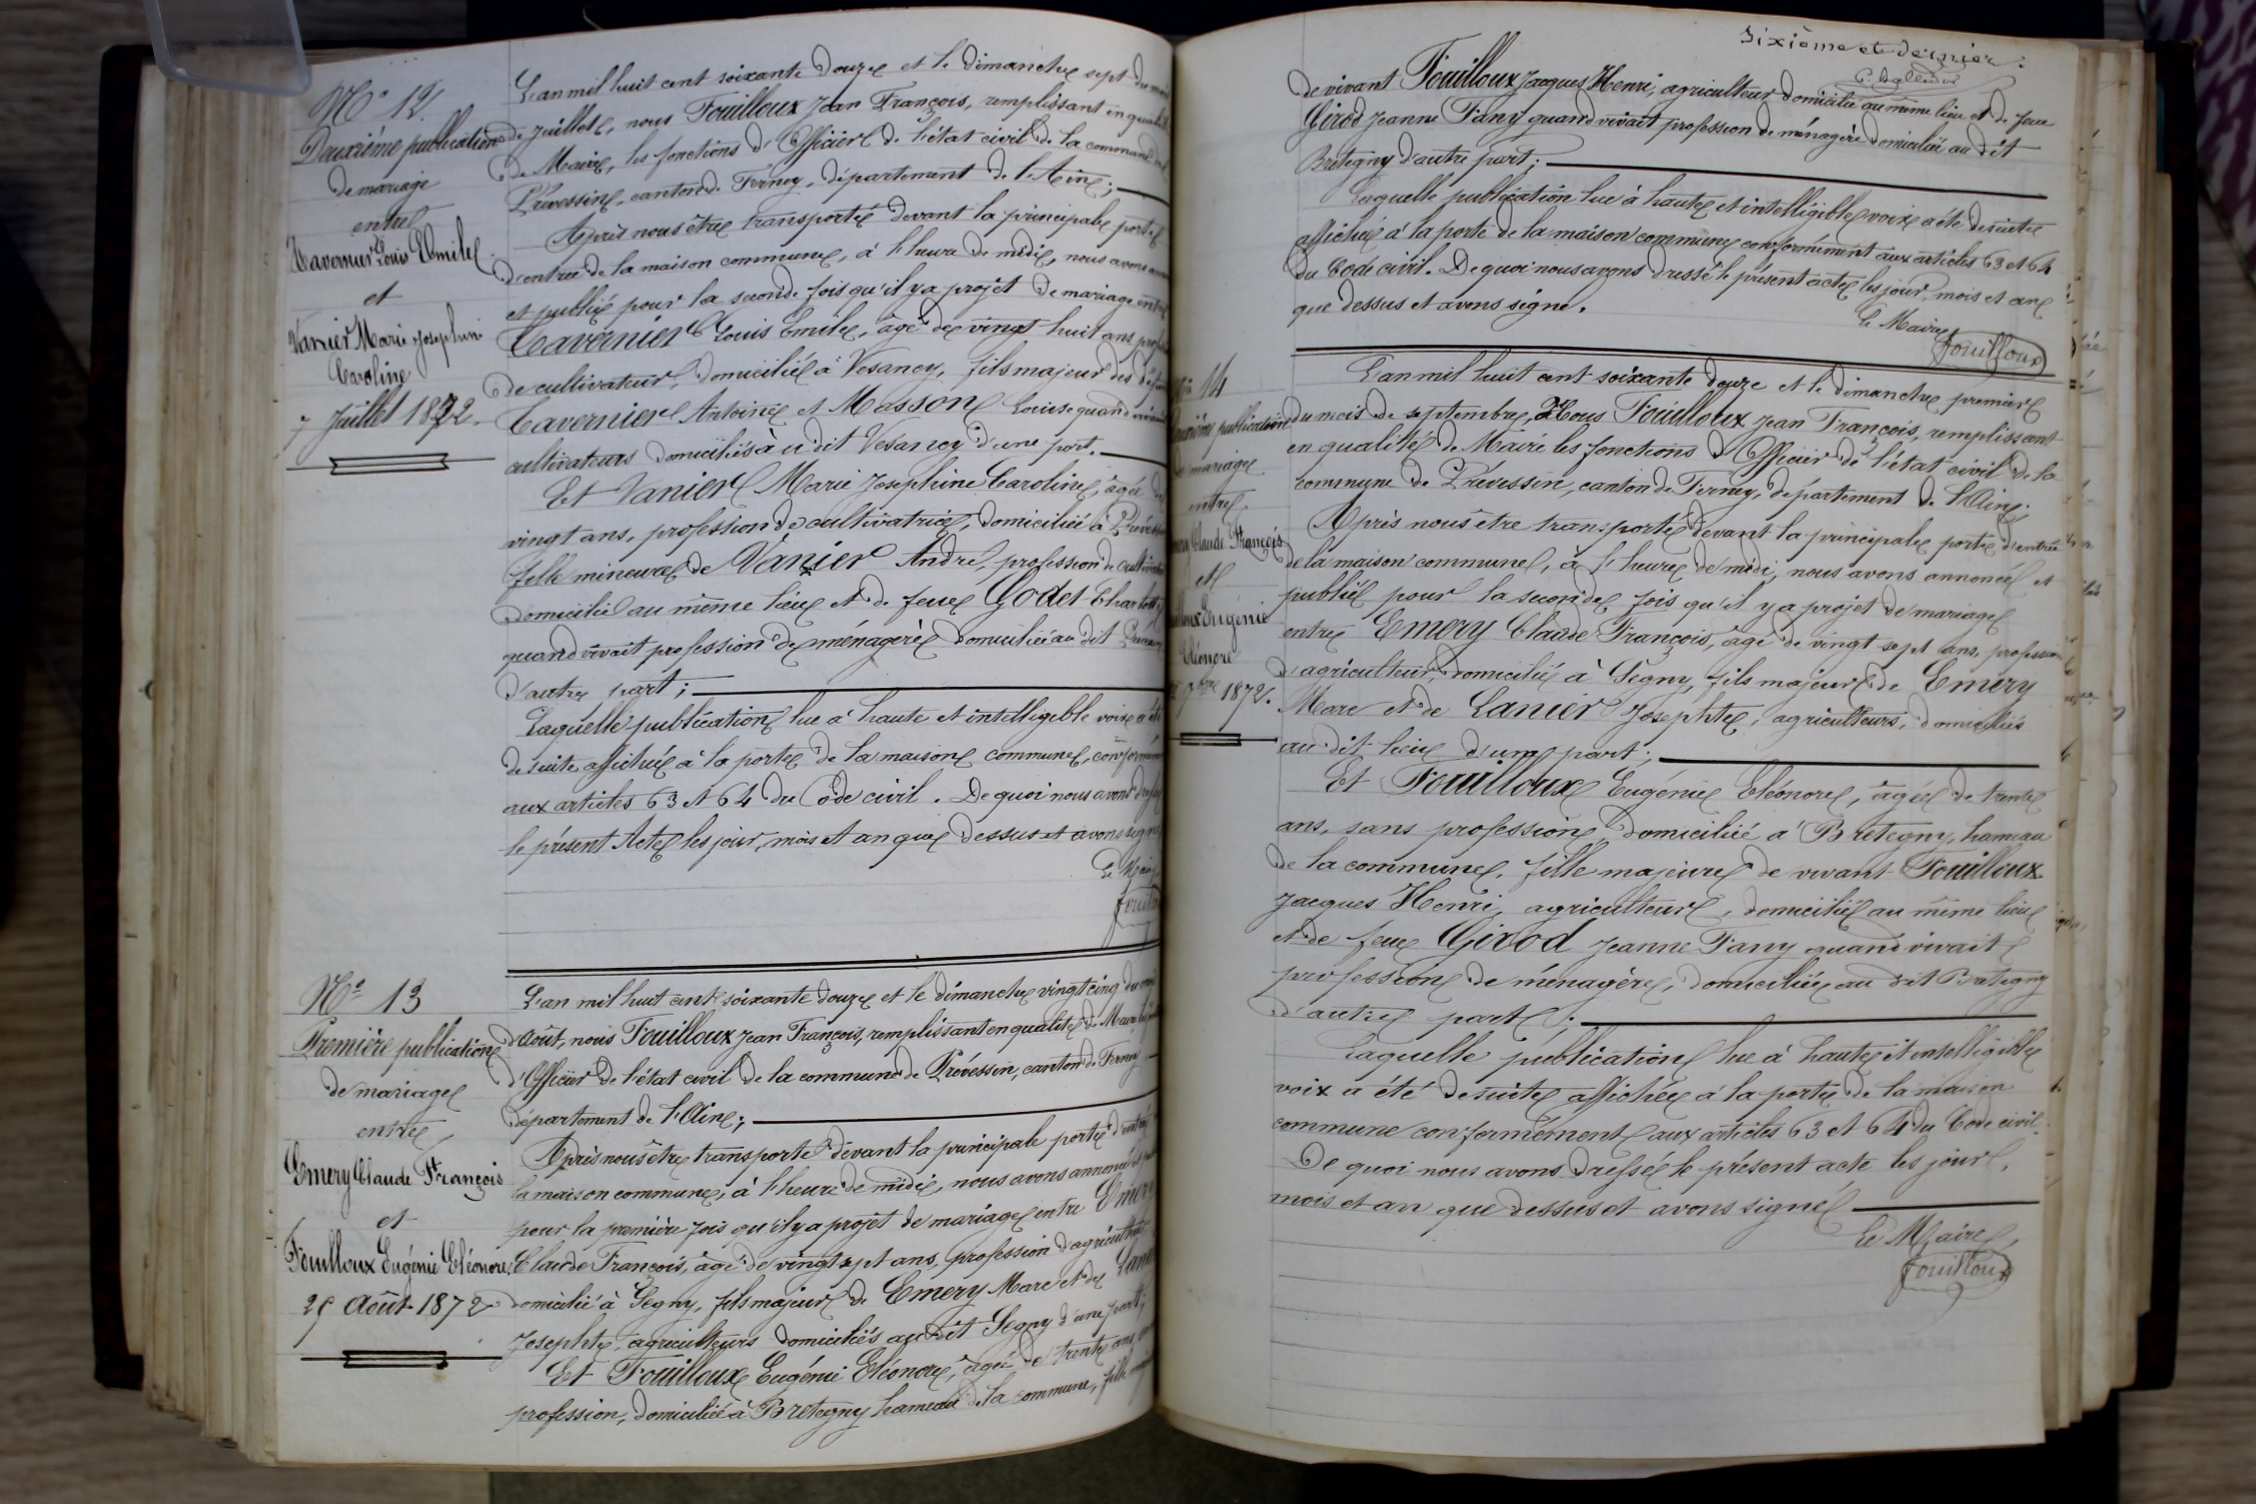 N° 12
Deuxième publication
de mariage
entre
Tavernier Louis Emile
et
Vanier Marie Josephine
Caroline
7 Juillet 1872.
L'an mil huit cent soixante douze et le dimanche sept du mois
de Juillet, nous Fouilloux Jean François, remplissant en qualité
de Maire, les fonctions d'Officier de l'état civil de la commune de
Prévessin, canton de Ferney, département de l'Ain;
Après nous être transporté devant la principale porte
d'entrée de la maison commune, à l'heure de midi, nous avons
et publié pour la seconde fois qu'il y a projet de mariage entre
Tavernier Louis Emile, âgé de vingt huit ans,
de cultivateur, domicilié à Vesancy, fils majeur des
Tavernier Antoine et Masson Louise quand
cultivateurs domiciliés à u dit Vesancy d'une part.
Et Vanier Marie Josephine Caroline, âgée de
vingt ans, profession de cultivatrice, domiciliée à
fille mineure de Vanier André, profession de
domicilié au même lieu et de feue Godet
quand vivait profession de ménagère domiciliée au dit
d'autre part;
Laquelle publication lue à haute et intelligible voix a été
de suite affichée à la porte de la maison commune,
aux articles 63 et 64 du Code civil. De quoi nous avons
le présent Acte les jour, mois et an que dessus et avons signé
Le Maire
N° 13
Première publication
de mariage
entre
Emery Claude François
et
Fouilloux Eugénie Eléonore
25 Août 1872
L'an mil huit cent soixante douze et le dimanche vingt cinq du mois
d'Août, nous Fouilloux Jean François, remplissant en qualité de Maire les
d'Officier de l'état civil de la commune de Prévessin, canton de Ferney
département de l'Ain;
Après nous être transporté devant la principale porte d'entrée
la maison commune, à l'heure de midi, nous avons annoncé
pour la première fois qu'il y a projet de mariage entre Emery
Claude François, âgé de vingt sept ans, profession d'agriculteur
domicilié à Segny, fils majeur de Emery Marc et de
Josephte, agriculteurs domiciliés au dit Segny d'une part;
Et Fouilloux Eugénie Eléonore, âgée de trente ans
profession, domiciliée à Bretegny hameau de la commune, fille
Sixième et dernier.
de vivant Fouilloux Jacques Henri, agriculteur domicilié au même lieu et de feue
Girod Jeanne Fany quand vivait profession de ménagère domiciliée au dit
Bretegny d'autre part;
Laquelle publication lue à haute et intelligible voix a été de suite
affichée à la porte de la maison commune conformément aux articles 63 et 64
du Code civil. De quoi nous avons dressé le présent acte les jour, mois et an
que dessus et avons signé.
Le Maire
Fouilloux
14
publication
mariage
entre
Claude François
et
Eugénie
Eléonore
7bre 1872.
L'an mil huit cent soixante douze et le dimanche premier
du mois de septembre, Nous Fouilloux Jean François, remplissant
en qualité de Maire les fonctions d'Officier de l'état civil de la
commune de Prévessin, canton de Ferney, département de l'Ain;
Après nous être transporté devant la principale porte d'entrée
de la maison commune, à l'heure de midi, nous avons annoncé et
publié pour la seconde fois qu'il y a projet de mariage
entre Emery Claude François, âgé de vingt sept ans, profession
d'agriculteur, domicilié à Segny, fils majeur de Emery
Marc et de Lanier Josephte, agriculteurs, domiciliés
au dit lieu d'une part;
Et Fouilloux Eugénie Eléonore, âgée de trente
ans, sans profession domiciliée à Bretegny, hameau
de la commune, fille majeure de vivant Fouilloux
Jacques Henri, agriculteur, domicilié au même lieu
et de feue Girod Jeanne Fany quand vivait
profession de ménagère, domiciliée au dit Bretegny
d'autre part;
Laquelle publication lue à haute et intelligible
voix a été de suite affichée à la porte de la maison
commune conformément aux articles 63 et 64 du Code civil.
De quoi nous avons dressé le présent acte les jour,
mois et an que dessus et avons signé
Le Maire,
Fouilloux